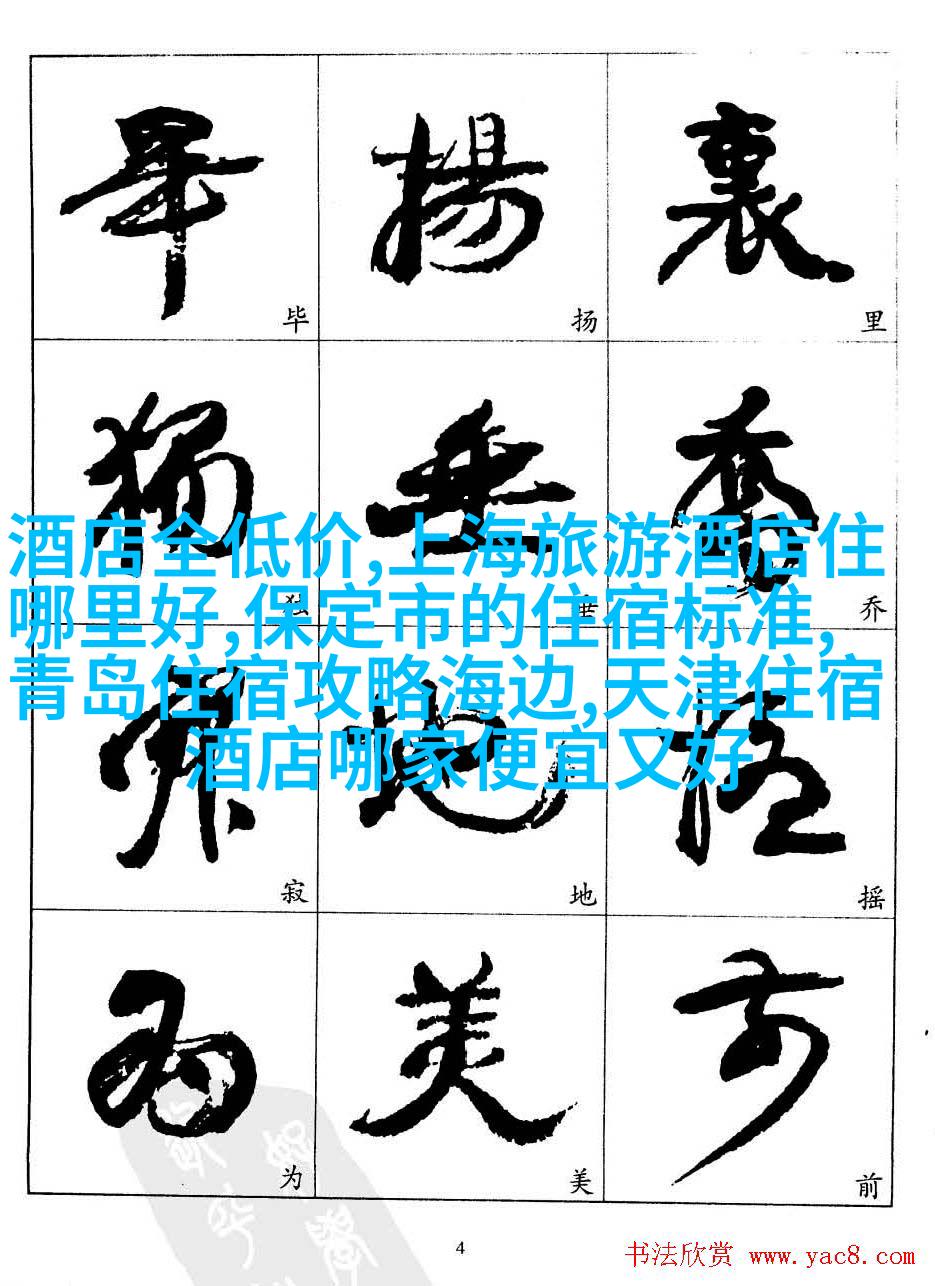 畢 揚 裏
毕 扬 里
獨 垂 喬
独 垂 乔
酒店全低价,上海旅游酒店住
哪里好,保定市的住宿标准,
青岛住宿攻略海边,天津住宿
酒店哪家便宜又好
寂 地 摇
寂 地 摇
为 美 前
为 美 前
4
书法欣赏 www.yac8.com